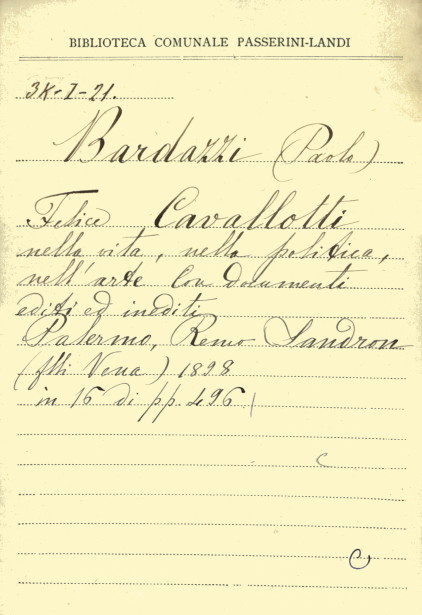 BIBLIOTECA COMUNALE PASSERINI-LANDI
3K-I-21.
Bardazzi (Paolo)
Felice Cavallotti
nella vita, nella politica,
nell'arte con documenti
editi ed inediti
Palermo, Remo Sandron
(flli Vena) 1898
in 16 di pp. 496